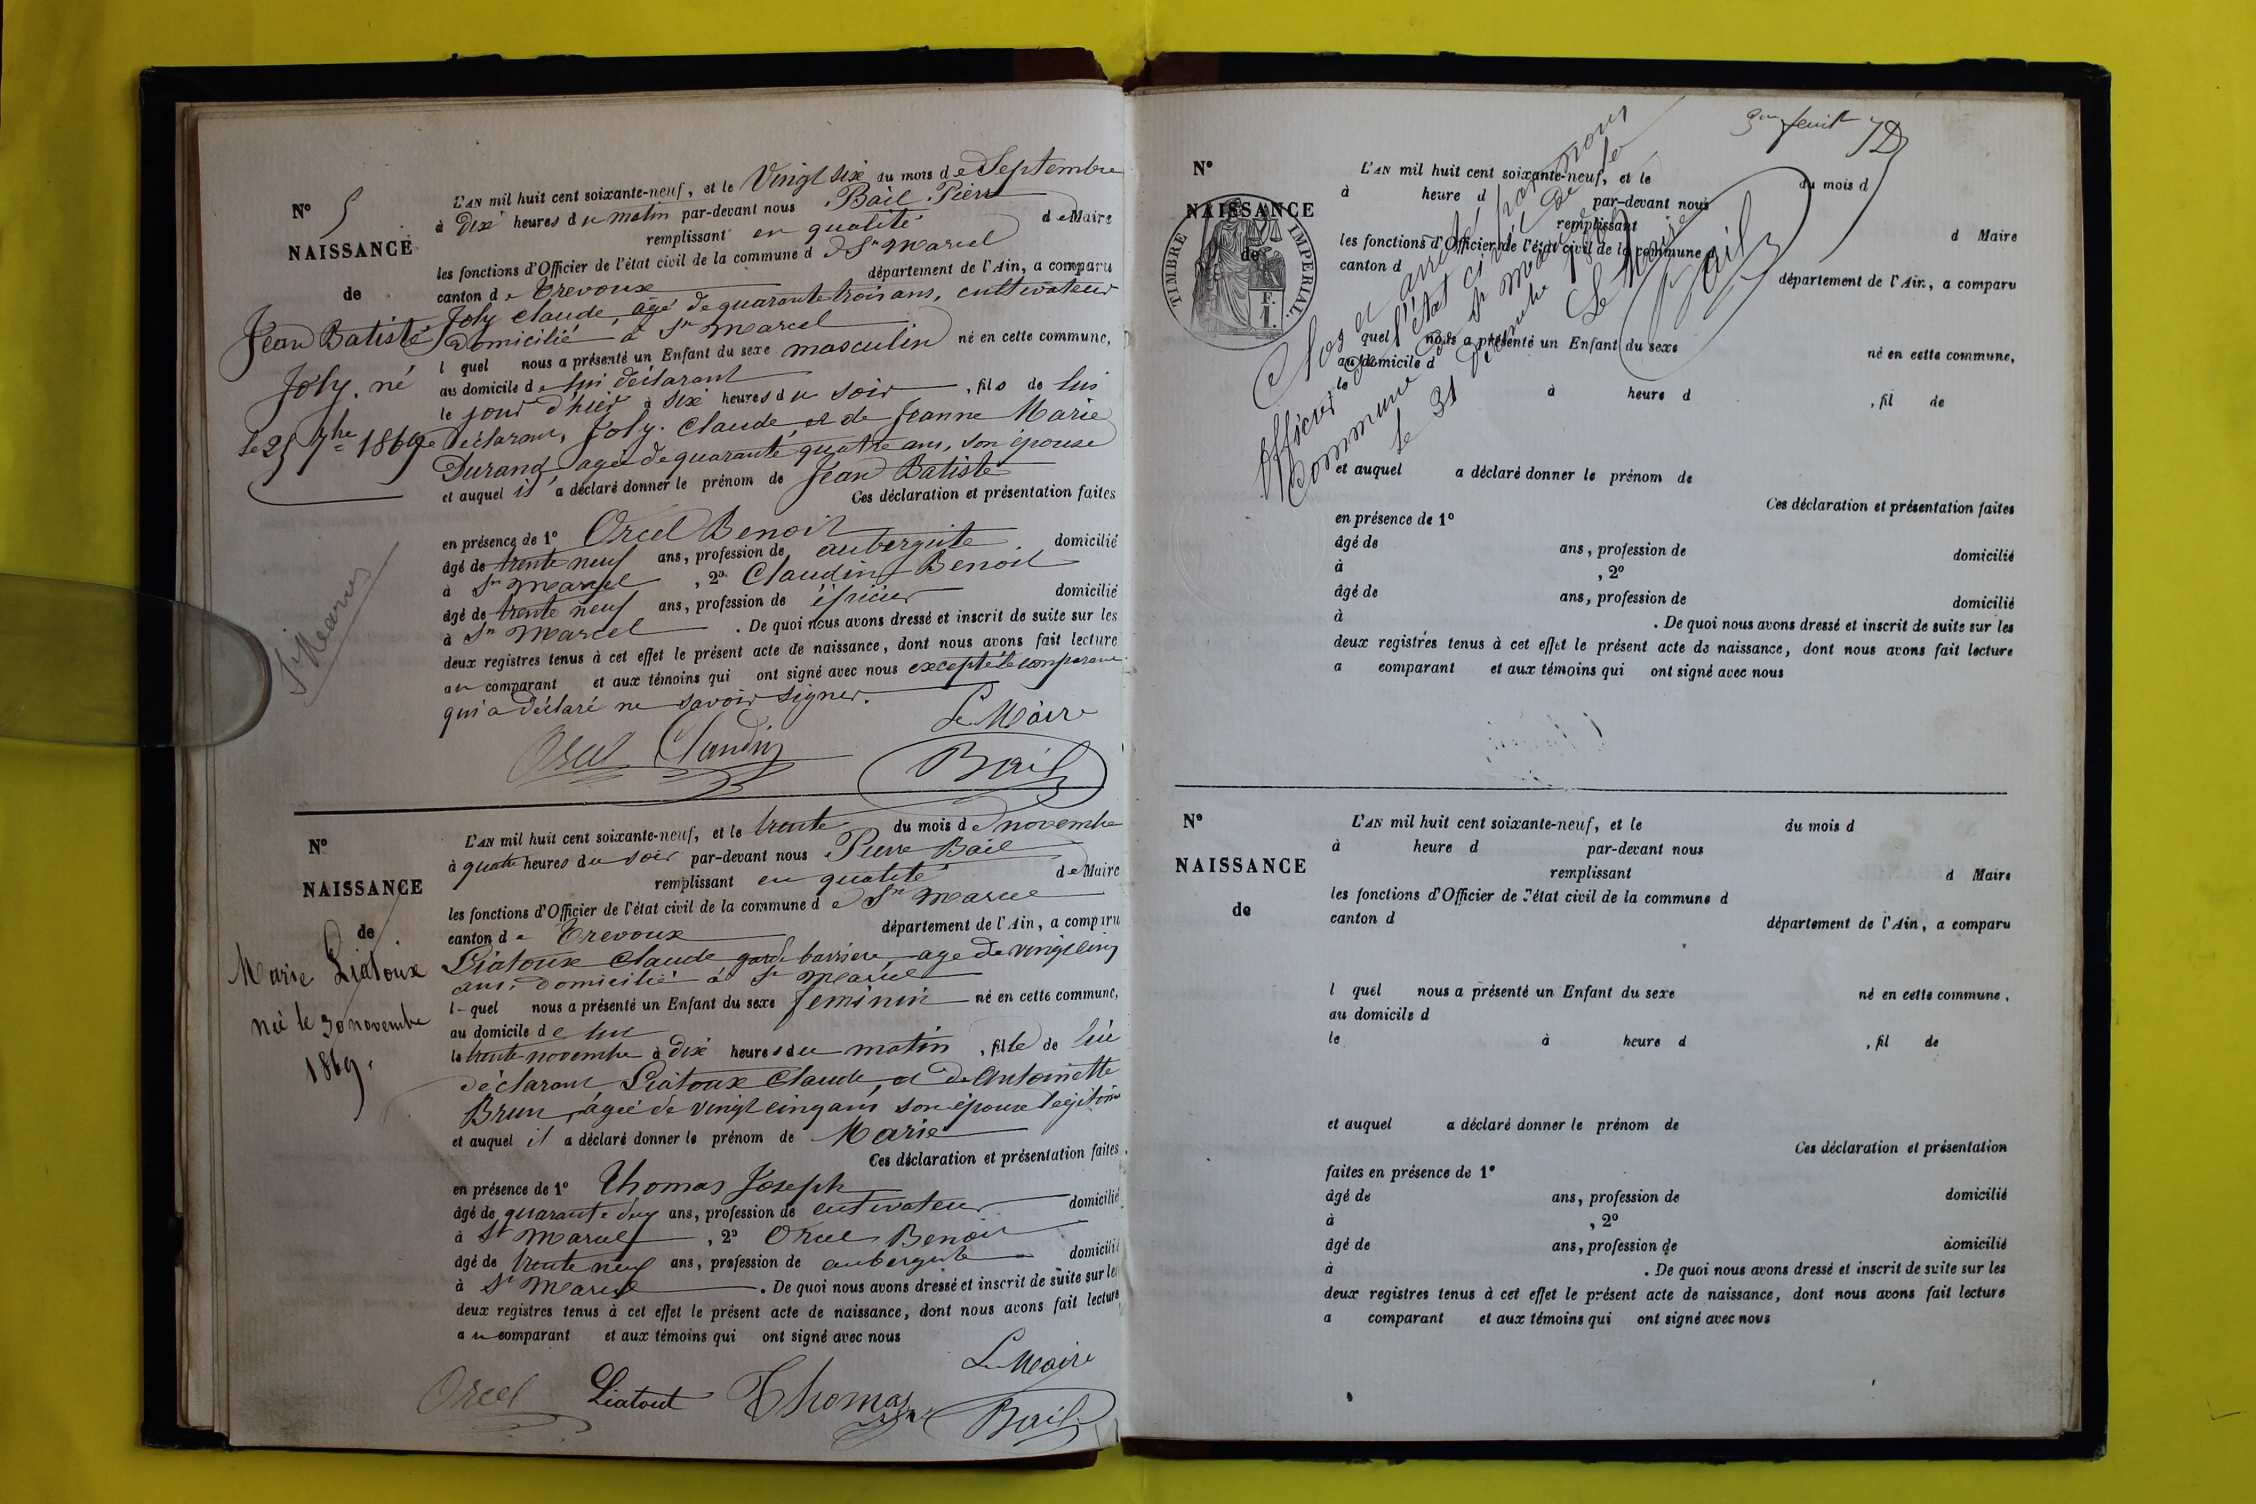 N° 5
NAISSANCE
de
Jean Batiste
Joly, né
le 25 7bre 1869
St Marcel
L'AN mil huit cent soixante-neuf, et le Vingt six du mois de Septembre
à Dix heures du matin par-devant nous Bail Pierre
remplissant en qualité de Maire
les fonctions d'Officier de l'état civil de la commune d e St Marcel
canton de Trevoux département de l'Ain, a comparu
Joly Claude, âgé de quarante trois ans, cultivateur
Domicilié à St Marcel
l quel nous a présenté un Enfant du sexe masculin né en cette commune,
au domicile de lui déclarant
le jour d'hier à six heures du soir, fils de lui
Déclarant, Joly Claude, et de Jeanne Marie
Durand agée de quarante quatre ans, son épouse
et auquel il a déclaré donner le prénom de Jean Batiste
Ces déclaration et présentation faites
en présence de 1° Orcel Benoit
âgé de trente neuf ans, profession de aubergiste domicilié
à St Marcel, 2° Claudin Benoit
âgé de trente neuf ans, profession de épicier domicilié
à St Marcel. De quoi nous avons dressé et inscrit de suite sur les
deux registres tenus à cet effet le présent acte de naissance, dont nous avons fait lecture
au comparant et aux témoins qui ont signé avec nous excepté le comparant
qui a déclaré ne savoir signer.
Le Maire
Orcel Claudin Bail
N°
NAISSANCE
de
Marie Liatoux
née le 30 novembre
1869.
L'AN mil huit cent soixante-neuf, et le trente du mois de novembre
à quatre heures du soir par-devant nous Pierre Bail
remplissant en qualité de Maire
les fonctions d'Officier de l'état civil de la commune d e St Marcel
canton de Trevoux département de l'Ain, a comparu
Liatoux Claude garde barriere, age de vingt cinq
ans, domicilié à St Marcel
l quel nous a présenté un Enfant du sexe feminin né en cette commune,
au domicile de lui
le trente novembre à dix heures du matin, fille de lui
déclarant Liatoux Claude, et de Antoinette
Brun, âgée de vingt cinq ans son épouse legitime
et auquel il a déclaré donner le prénom de Marie
Ces déclaration et présentation faites
en présence de 1° Thomas Joseph
âgé de quarante deux ans, profession de cultivateur domicilié
à St Marcel, 2° Orcel Benoit
âgé de trente neuf ans, profession de aubergiste domicilié
à St Marcel. De quoi nous avons dressé et inscrit de suite sur les
deux registres tenus à cet effet le présent acte de naissance, dont nous avons fait lecture
au comparant et aux témoins qui ont signé avec nous
Le Maire
Orcel Liatout Thomas Bail
3me feuillet
N°
NAISSANCE
de
TIMBRE IMPERIAL.
F.
1.
L'AN mil huit cent soixante-neuf, et le du mois d
à heure d par-devant nous
remplissant d Maire
les fonctions d'Officier de l'état civil de la commune d
canton d département de l'Ain, a comparu
l quel nous a présenté un Enfant du sexe né en cette commune,
au domicile d
le à heure d , fil de
et auquel a déclaré donner le prénom de
Ces déclaration et présentation faites
en présence de 1°
âgé de ans, profession de domicilié
à , 2°
âgé de ans, profession de domicilié
à . De quoi nous avons dressé et inscrit de suite sur les
deux registres tenus à cet effet le présent acte de naissance, dont nous avons fait lecture
a comparant et aux témoins qui ont signé avec nous
Clos et arrêté par nous
Officier de l'état civil de la
Commune de St Marcel
le 31 Décembre 1869
Le Maire
Bail
N°
NAISSANCE
de
L'AN mil huit cent soixante-neuf, et le du mois d
à heure d par-devant nous
remplissant d Maire
les fonctions d'Officier de l'état civil de la commune d
canton d département de l'Ain, a comparu
l quel nous a présenté un Enfant du sexe né en cette commune,
au domicile d
le à heure d , fil de
et auquel a déclaré donner le prénom de
Ces déclaration et présentation
faites en présence de 1°
âgé de ans, profession de domicilié
à , 2°
âgé de ans, profession de domicilié
à . De quoi nous avons dressé et inscrit de suite sur les
deux registres tenus à cet effet le présent acte de naissance, dont nous avons fait lecture
a comparant et aux témoins qui ont signé avec nous